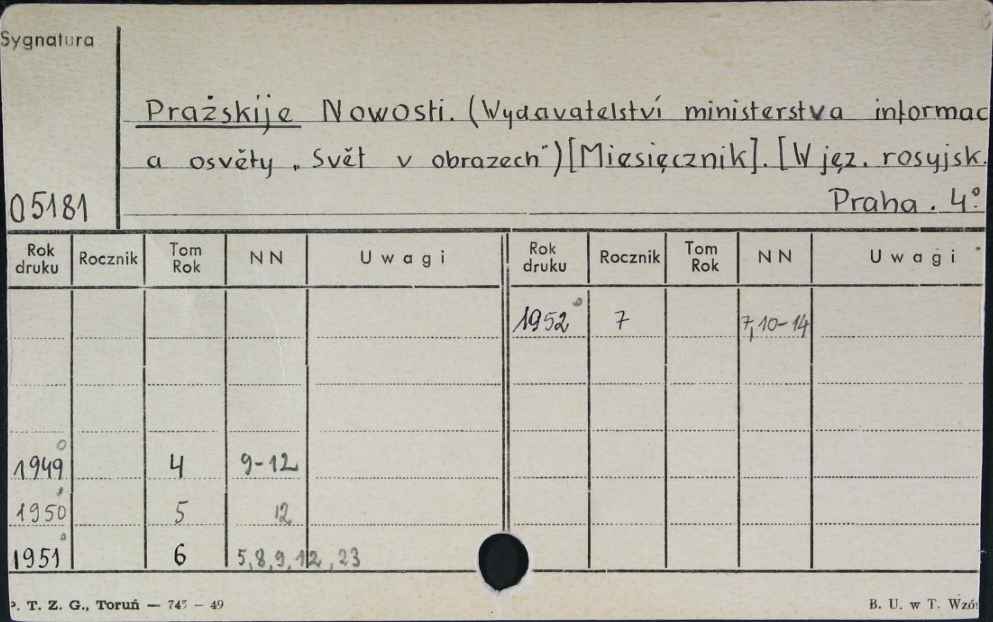 Sygnatura
Prażskije Nowosti. (Wydavatelství ministerstva informac
a osvěty „Svět v obrazech")[Miesięcznik]. [W jęz. rosyjsk.
05181
Praha. 4°
Rok druku Rocznik Tom Rok NN Uwagi Rok druku Rocznik Tom Rok NN Uwagi
1952 7 7,10-14
1949 4 9-12
1950 5 12
1951 6 5,8,9,12,23
P. T. Z. G., Toruń — 745 – 49
B. U. w T. Wzór